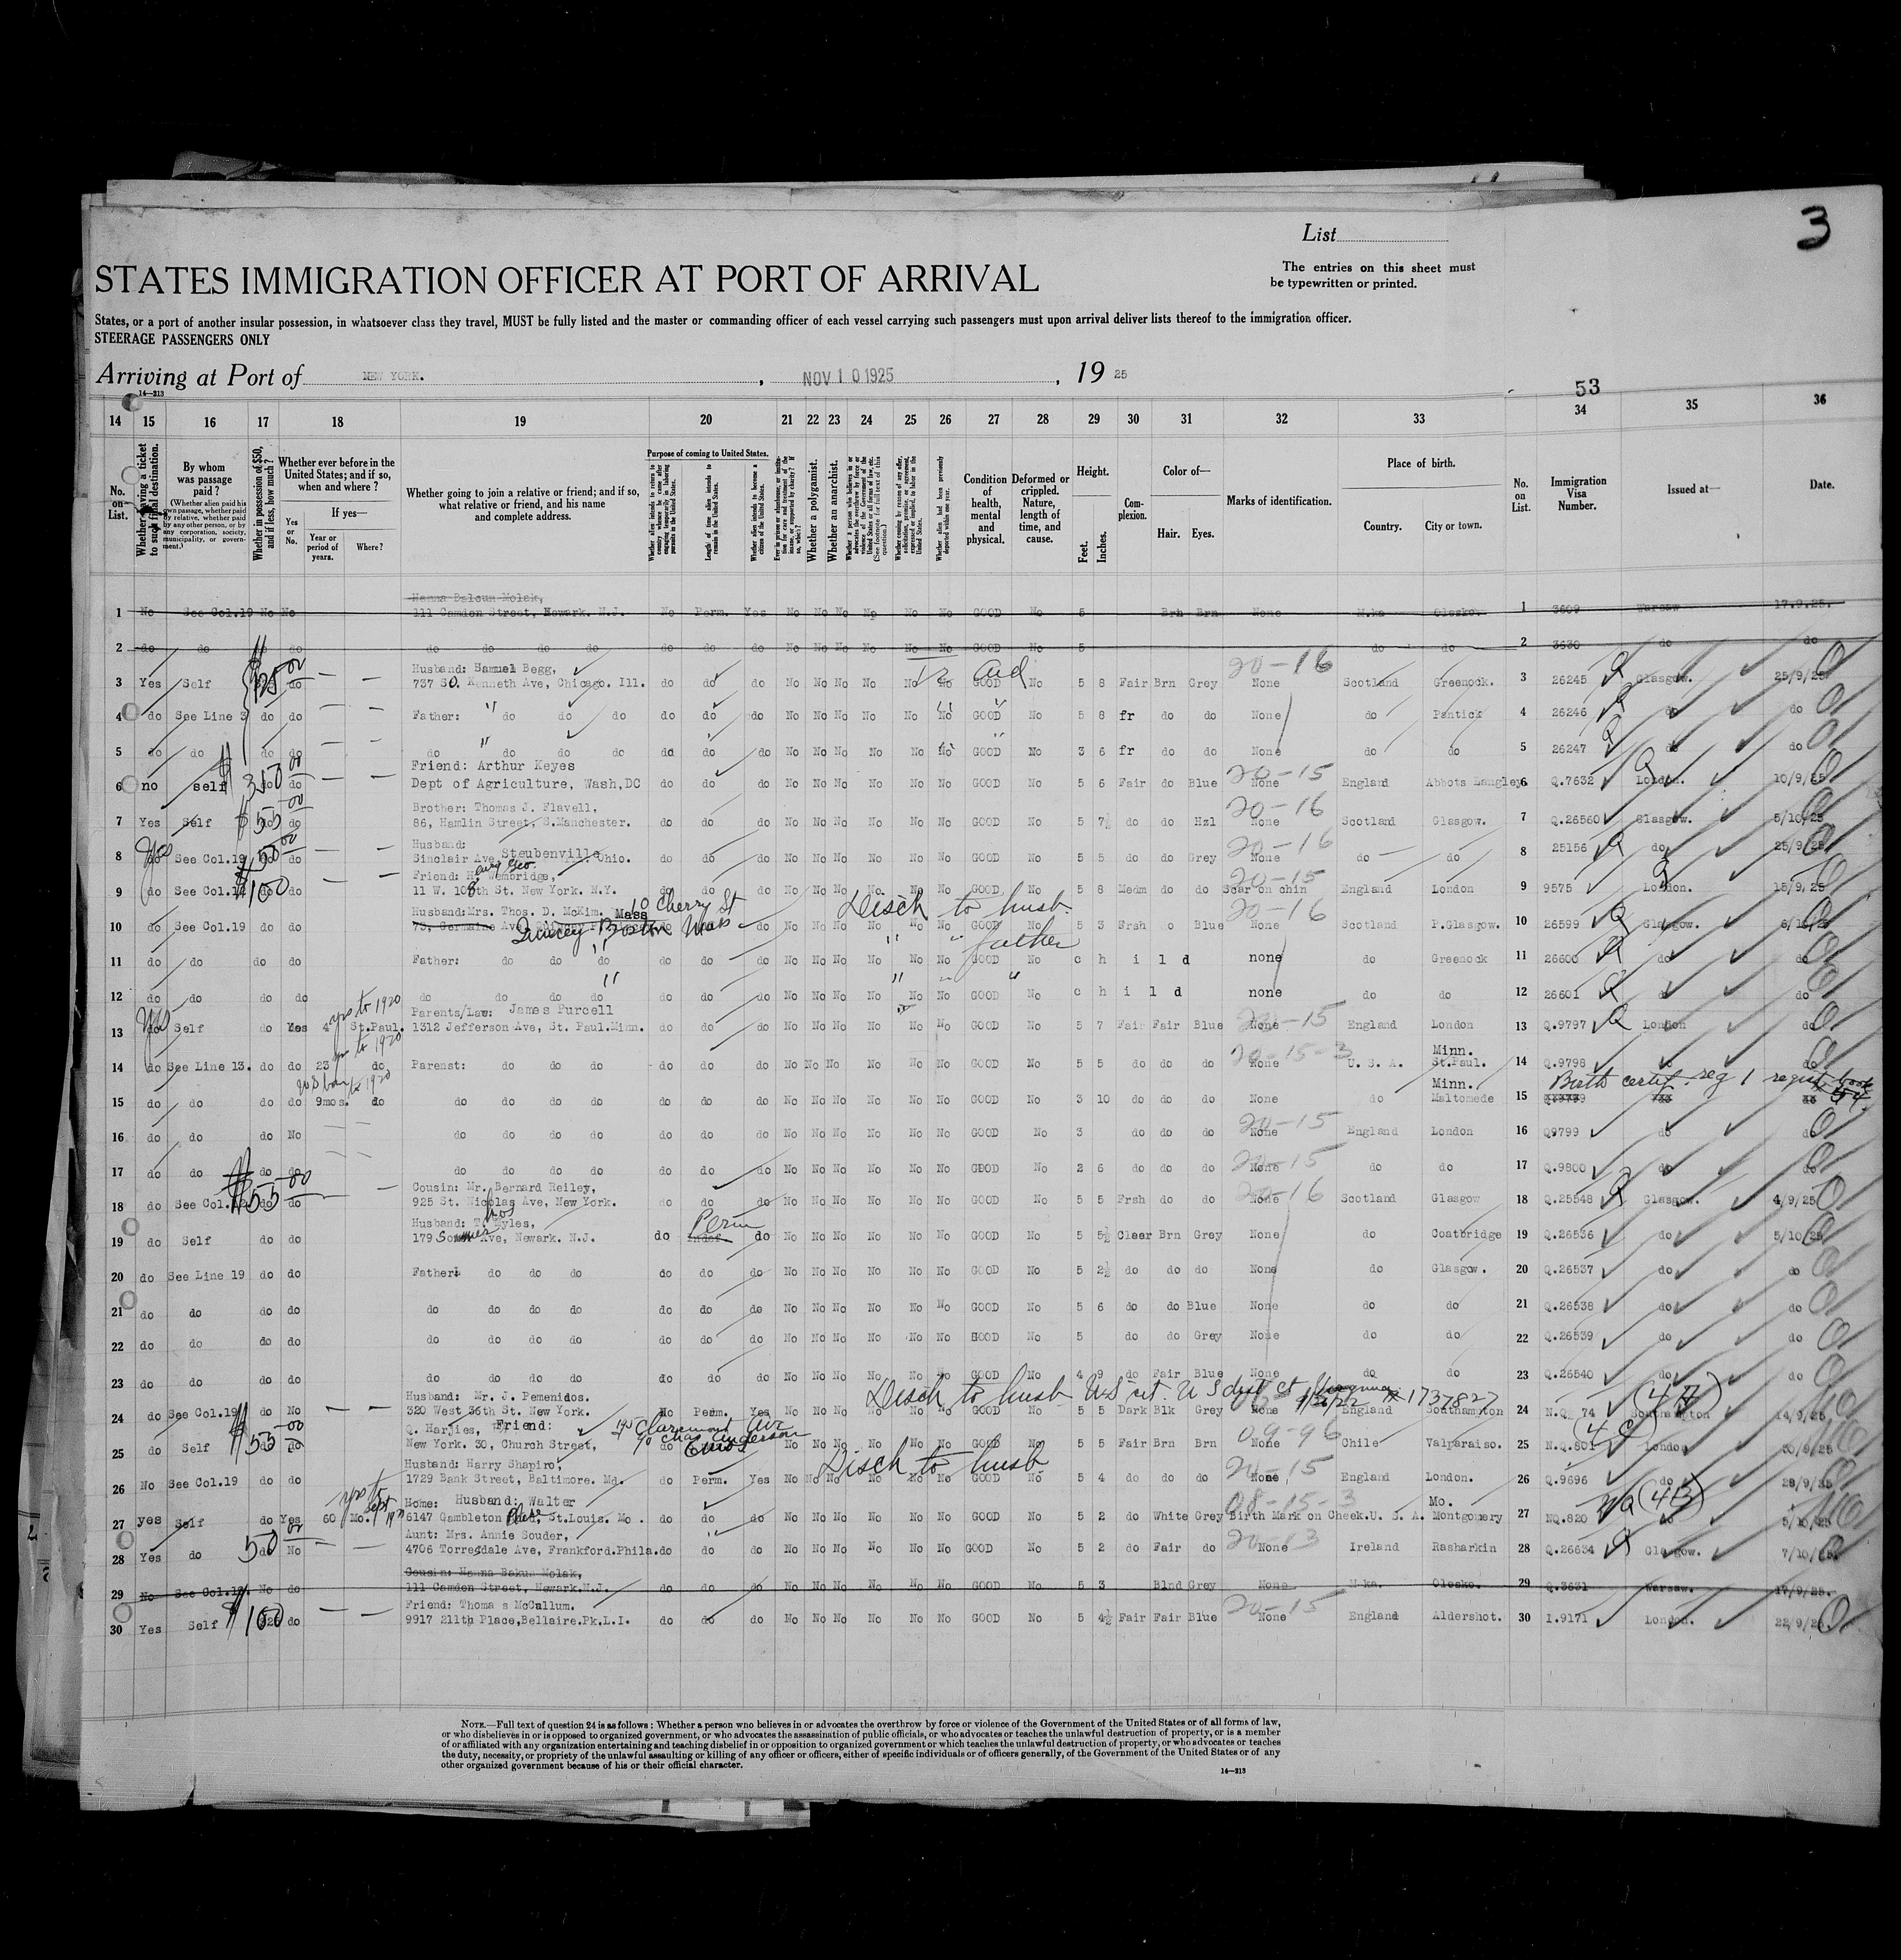 3
List
STATES IMMIGRATION OFFICER AT PORT OF ARRIVAL
The entries on this sheet must
be typewritten or printed.
States, or a port of another insular possession, in whatsoever class they travel, MUST be fully listed and the master or commanding officer of each vessel carrying such passengers must upon arrival deliver lists thereof to the immigration officer.
STEERAGE PASSENGERS ONLY
Arriving at Port of NEW YORK. , NOV 10 1925 , 19 25
14—213
53
14 15 16 17 18 19 20 21 22 23 24 25 26 27 28 29 30 31 32 33 34 35 36
No. on List.
Whether having a ticket to such final destination.
By whom was passage paid?
(Whether alien paid his own passage, whether paid by relative, whether paid by any other person, or by any corporation, society, municipality, or government.)
Whether in possession of $50, and if less, how much?
Whether ever before in the United States; and if so, when and where?
Yes or No.
If yes—
Year or period of years.
Where?
Whether going to join a relative or friend; and if so, what relative or friend, and his name and complete address.
Purpose of coming to United States.
Whether alien intends to return to country whence he came after engaging temporarily in laboring pursuits in the United States.
Length of time alien intends to remain in the United States.
Whether alien intends to become a citizen of the United States.
Whether a polygamist.
Whether an anarchist.
Condition of health, mental and physical.
Deformed or crippled. Nature, length of time, and cause.
Height.
Feet. Inches.
Complexion.
Color of—
Hair. Eyes.
Marks of identification.
Place of birth.
Country. City or town.
No. on List.
Immigration Visa Number.
Issued at—
Date.
Hanna Balcun Molak,
1 No See Col.19 No No 111 Camden Street, Newark. N.J. No Perm. Yes No No No No No No GOOD No 5 Brn Brn None Olesko. 1 3609 Warsaw 17.9.25.
2 do do do do do do do do do do do No No No No No No GOOD No 5 do do 2 3630 do do
Husband: Samuel Begg, 20-16
3 Yes Self 125 00 do — — 737 SO. Kenneth Ave, Chicago. Ill. do do do No No No No No No GOOD No 5 8 Fair Brn Grey None Scotland Greenock. 3 26245 Glasgow. 25/9/25
4 do See Line 3 do do — — Father: do do do do do do No No No No No No GOOD No 5 8 fr do do None do Pantick 4 26246 do do
5 do do do do — — do do do do do do do No No No No No No GOOD No 3 6 fr do do None do do 5 26247 do do
Friend: Arthur Keyes 20-15
6 no self do — — Dept of Agriculture, Wash,DC do do do No No No No No No GOOD No 5 6 Fair do Blue None England Abbots Langley. 6 Q.7632 London. 10/9/25
Brother: Thomas J. Flavell, 20-16
7 Yes Self $55 00 do 86, Hamlin Street, S.Manchester. do do do No No No No No No GOOD No 5 7½ do do Hzl None Scotland Glasgow. 7 Q.26560 Glasgow. 5/10/25
Husband: Steubenville 20-16
8 do See Col.19 50 00 do — — Sinclair Ave, Ohio. do do do No No No No No No GOOD No 5 5 do do Grey None do do 8 25156 do 25/9/25
Friend: Wambridge, 20-15
9 do See Col.19 $100 do — — 11 W. 108th St. New York. N.Y. do do do No No No No No No GOOD No 5 8 Medm do do Scar on chin England London 9 9575 London. 15/9/25
Husband:Mrs. Thos. D. McKim. Mass 10 Cherry St Disch to husb. 20-16
10 do See Col.19 do do 75, Germaine Ave, Quincy Boston Mass do No No No No No No GOOD No 5 3 Frsh do Blue None Scotland P.Glasgow. 10 26599 Glasgow.
" father
11 do do do do Father: do do do do do do No No No No No No GOOD No c h i l d none do Greenock 11 26600 do do
12 do do do do do do do do do do do No No No No No No GOOD No c h i l d none do do 12 26601 do do
Parents/Law: James Purcell yrs to 1920 20-15
13 do Self do Yes 4 St.Paul. 1312 Jefferson Ave, St. Paul.Minn. do do do No No No No No No GOOD No 5 7 Fair Fair Blue None England London 13 Q.9797 London do
yrs to 1920 20-15-3 Minn.
14 do See Line 13. do do 23 do Parenst: do do do do do do No No No No No No GOOD No 5 5 do do do None U. S. A. St.Paul. 14 Q.9798 do do
US born to 1920 Minn. Birth certif. reg 1 regist book
15 do do do do 9mos. do do do do do do do do No No No No No No GOOD No 3 10 do do do None do Maltomede 15
20-15
16 do do do No do do do do do do do No No No No No No GOOD No 3 do do do None England London 16 Q9799 do do
20-15
17 do do do do do do do do do do do No No No No No No GOOD No 2 6 do do do None do do 17 Q.9800 do do
Cousin: Mr. Bernard Reiley, 20-16
18 do See Col.19 $55 00 do — 925 St. Nicolas Ave, New York. do do do No No No No No No GOOD No 5 5 Frsh do do None Scotland Glasgow 18 Q.25548 Glasgow. 4/9/25
Husband: T. Kyles, Perm
19 do Self do do 179 Ave, Newark. N.J. do Indef. do No No No No No No GOOD No 5 5½ Clear Brn Grey None do Coatbridge 19 Q.26536 do 5/10/25
20 do See Line 19 do do Father: do do do do do do No No No No No No GOOD No 5 2½ do do do None do Glasgow. 20 Q.26537 do do
21 do do do do do do do do do do do No No No No No No GOOD No 5 6 do do Blue None do do 21 Q.26538 do do
22 do do do do do do do do do do do No No No No No No GOOD No 5 do do Grey None do do 22 Q.26539 do do
23 do do do do do do do do do do do No No No No No No GOOD No 4 9 do Fair Blue None do do 23 Q.26540 do do
Husband: Mr. J. Pemenidos. Disch to husb U.S nt. U S dist ct # 1737827 (4 A)
24 do See Col.19 do No — — 320 West 36th St. New York. No Perm. Yes No No No No No No GOOD No 5 5 Dark Blk Grey None England Southampton 24 N.Q. 74 Southampton 14/9/25
Q. Harjies, Friend: Claremont Ave c/o Chas Anderson 09-96 (4 C)
25 do Self $55 00 do New York. 30, Church Street, do No No No No No No GOOD No 5 5 Fair Brn Brn None Chile Valparaiso. 25 N.Q.801 London 30/9/25
Husband: Harry Shapiro. Disch to husb 20-15
26 No See Col.19 do do 1729 Bank Street, Baltimore. Md. do Perm. Yes No No No No No No GOOD No 5 4 do do do None England London. 26 Q.9696 do 28/9/25
Home: Husband: Walter yrs to Sept 08-15-3 Mo. (4 B)
27 yes Self do Yes 60 Mo. 6147 Gambleton St.Louis. Mo. do do do No No No No No No GOOD No 5 2 do White Grey Birth Mark on Cheek. U. S. A. Montgomery 27 NQ.820 do 5/10/25
Aunt: Mrs. Annie Souder, 20-13
28 Yes do 50 00 No — — 4706 Torresdale Ave, Frankford.Phila. do do do No No No No No No GOOD No 5 2 do Fair do None Ireland Rasharkin 28 Q.26634 Glasgow. 7/10/25.
Cousin: Hanna Bakun Molak,
29 No See Col.19. No do 111 Camden Street, Newark.N.J. do do do No No No No No No GOOD No 5 3 Blnd Grey None Olesko. 29 Q.3631 Warsaw. 17/9/25.
Friend: Thoma s McCallum. 20-15
30 Yes Self $100 do — — 9917 211th Place,Bellaire.Pk.L.I. do do do No No No No No No GOOD No 5 4½ Fair Fair Blue None England Aldershot. 30 I.9171 London. 22/9/25.
NOTE.—Full text of question 24 is as follows: Whether a person who believes in or advocates the overthrow by force or violence of the Government of the United States or of all forms of law,
or who disbelieves in or is opposed to organized government, or who advocates the assassination of public officials, or who advocates or teaches the unlawful destruction of property, or is a member
of or affiliated with any organization entertaining and teaching disbelief in or opposition to organized government or which teaches the unlawful destruction of property, or who advocates or teaches
the duty, necessity, or propriety of the unlawful assaulting or killing of any officer or officers, either of specific individuals or of officers generally, of the Government of the United States or of any
other organized government because of his or their official character.
14—213